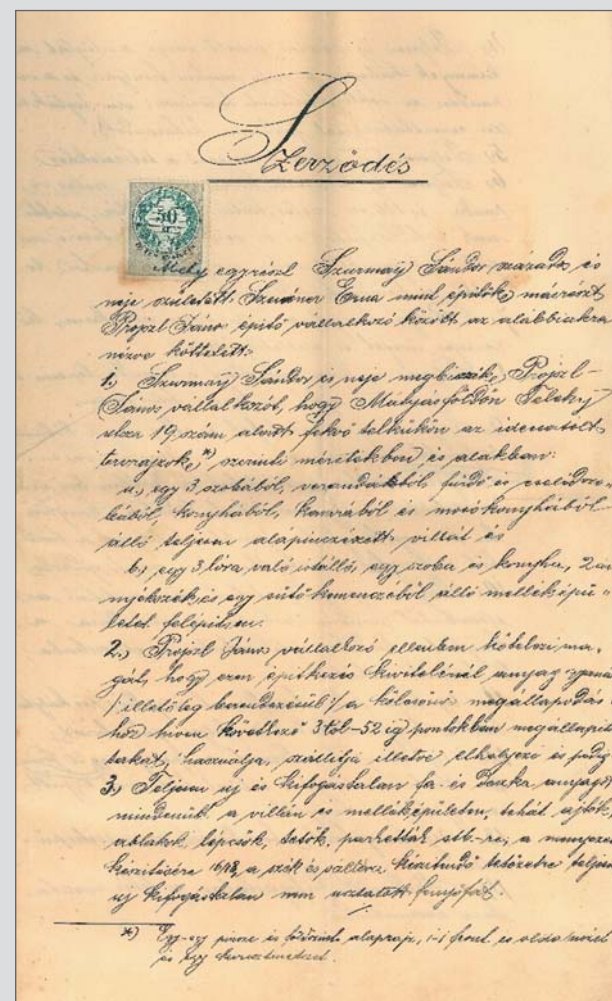 Szerződés
50
Mely egyrészt Szurmaÿ Sándor százados és
neje született Szvinner Erna mint építők, másrészt
Projzl János építő vállalkozó között az alábbiakra
nézve köttetett:
1.) Szurmaÿ Sándor és neje megbízzák Projzl
János vállalkozót, hogy Mátyásföldön Teleky
utcza 19 szám alatt fekvő telkükön az idecsatolt
tervrajzok *) szerinti méretekben és alakban:
a.) egy 3 szobából, verandákból, fürdő és cselédszo-
bából, konyhából, kamrából és mosókonyhából
álló teljesen alápinczézett villát és
b.) egy 3 lóra való istálló, egy szoba és konyha, 2 ár
nyékszék és egy sütő kemenczéből álló melléképü-
letet felépítsen.
2.) Projzl János vállalkozó ellenben kötelezi ma-
gát, hogy ezen építkezés kivitelénél anyag
/: illetőleg berendezésül :/ a kölcsönös megállapodás
hoz híven következő 3tól-52ig pontokban megállapít
takat, használja, szállítja illetve elhelyezi és pedig
3.) Teljesen új és kifogástalan fa- és anyagot
mindenütt a villán és melléképületen, tehát ajtók,
ablakok, lépcsők, tetők, parketták stb.-re, a menyezet
készítésére 16/18, a készítendő tetőzetre teljesen
új kifogástalan nem usztatott fenyőfát.
*) Egy-egy pincze és földszint alaprajz, 1-1 front és oldalnézet
és egy keresztmetszet.